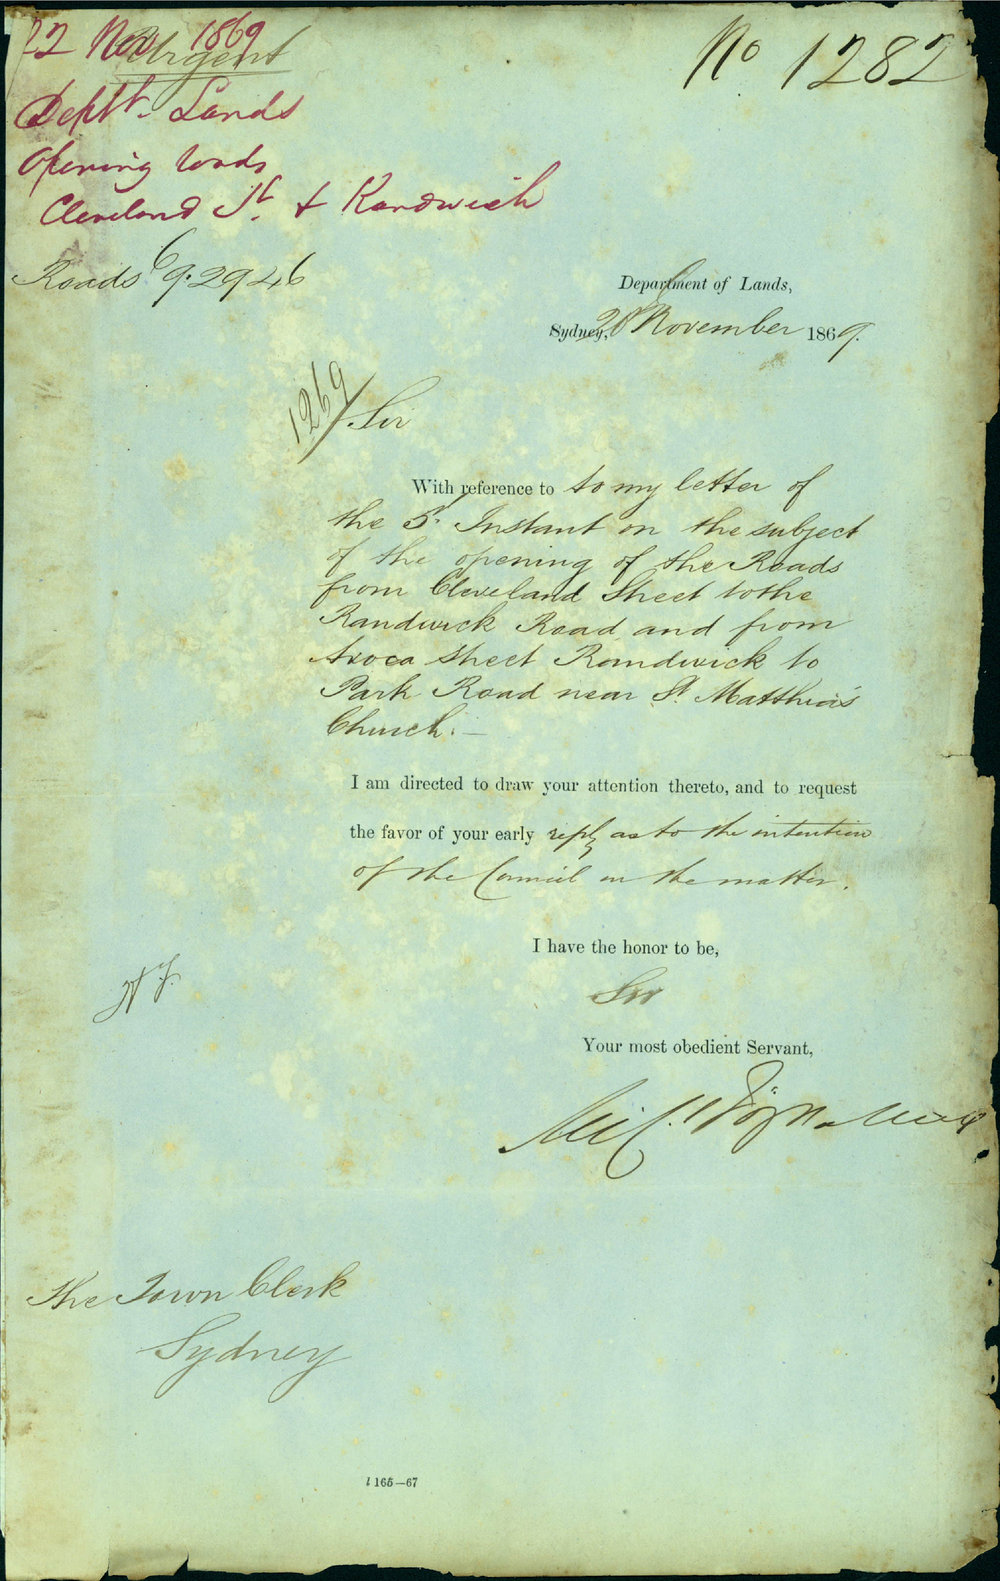 22 Nov 1869
Urgent
No 1282
Deptt. Lands
Opening roads
Cleveland St. & Randwick
Roads 69.2946
Department of Lands,
Sydney, 20 November 1869.
1269
Sir
With reference to to my letter of
the 5th Instant on the subject
of the opening of the Roads
from Cleveland Street to the
Randwick Road and from
Avoca Street Randwick to
Park Road near St. Matthias
Church.—
I am directed to draw your attention thereto, and to request
the favor of your early reply as to the intention
of the Council in the matter.
I have the honor to be,
Sir
Your most obedient Servant,
The Town Clerk
Sydney
l 165—67